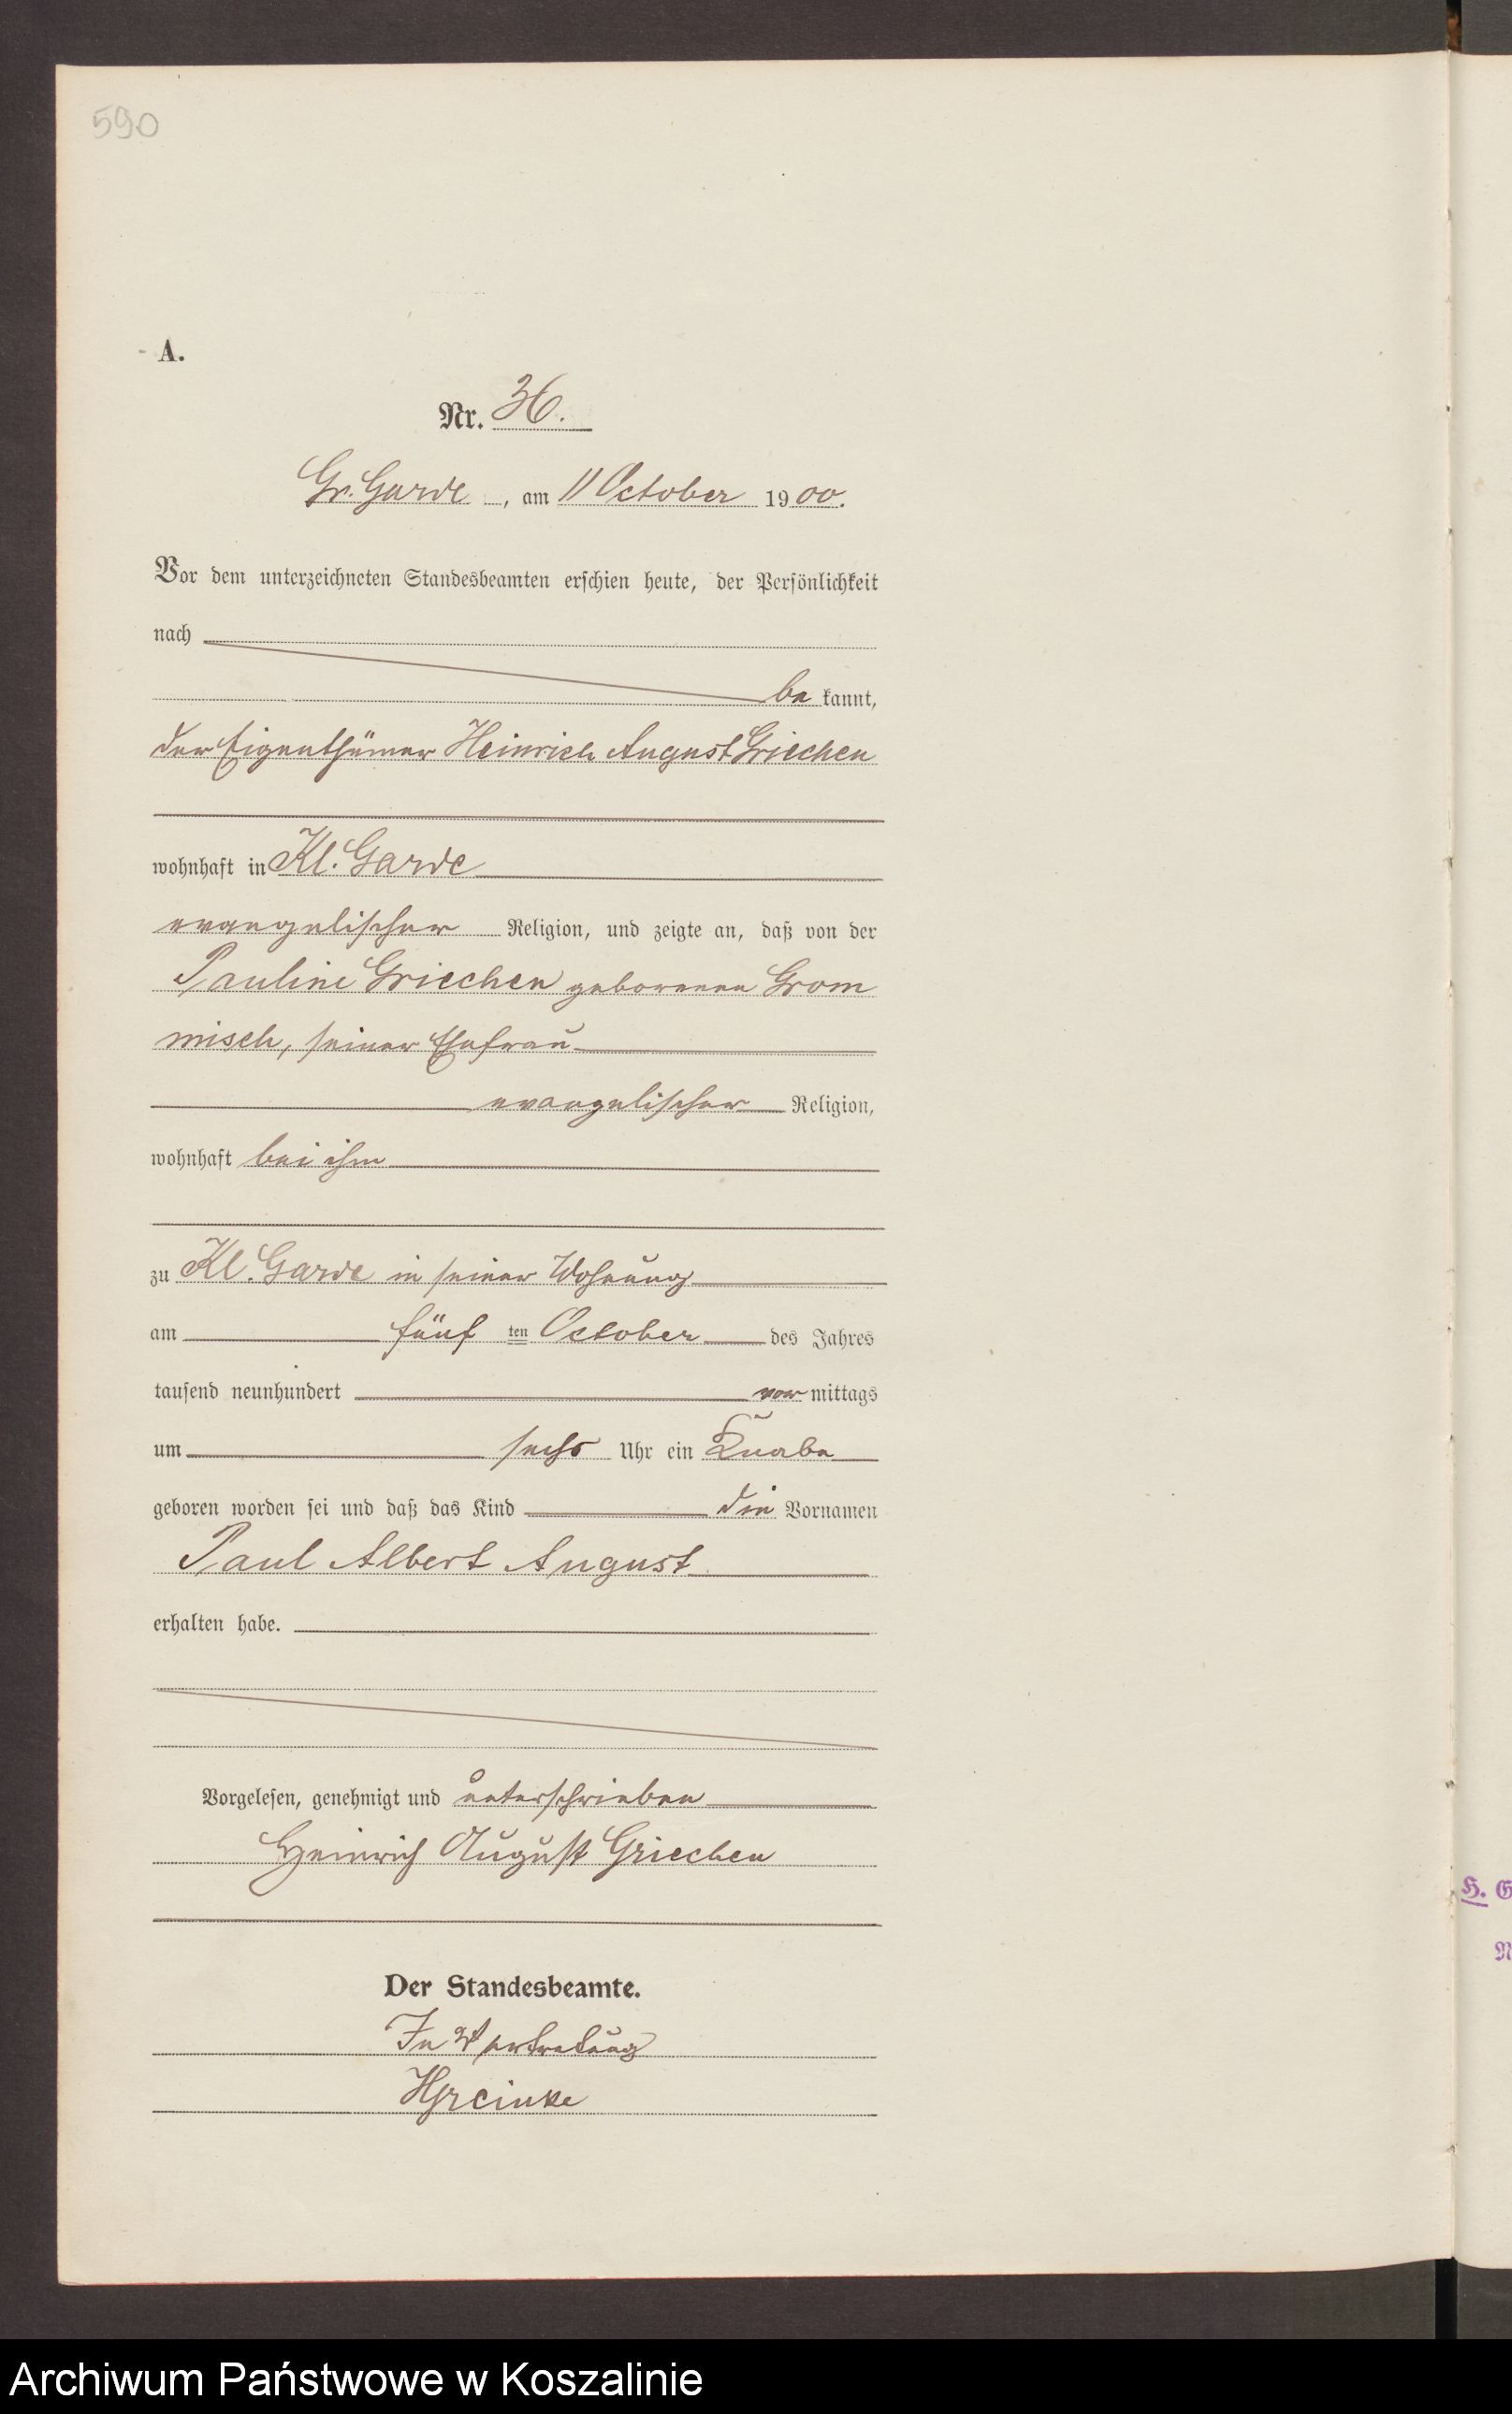 590
A.
Nr. 36.
Gr. Garde, am 11 October 1900.
Vor dem unterzeichneten Standesbeamten erschien heute, der Persönlichkeit
nach
be kannt,
der Eigenthümer Heinrich August Griechen
wohnhaft in Kl. Garde
evangelischer Religion, und zeigte an, daß von der
Pauline Griechen geborenen Grom
misch, seiner Ehefrau
evangelischer Religion,
wohnhaft bei ihm
zu Kl. Garde in seiner Wohnung
am fünf ten October des Jahres
tausend neunhundert vor mittags
um sechs Uhr ein Knabe
geboren worden sei und daß das Kind die Vornamen
Paul Albert August
erhalten habe.
Vorgelesen, genehmigt und unterschrieben
Heinrich August Griechen
Der Standesbeamte.
In Vertretung
H. G
Archiwum Państwowe w Koszalinie